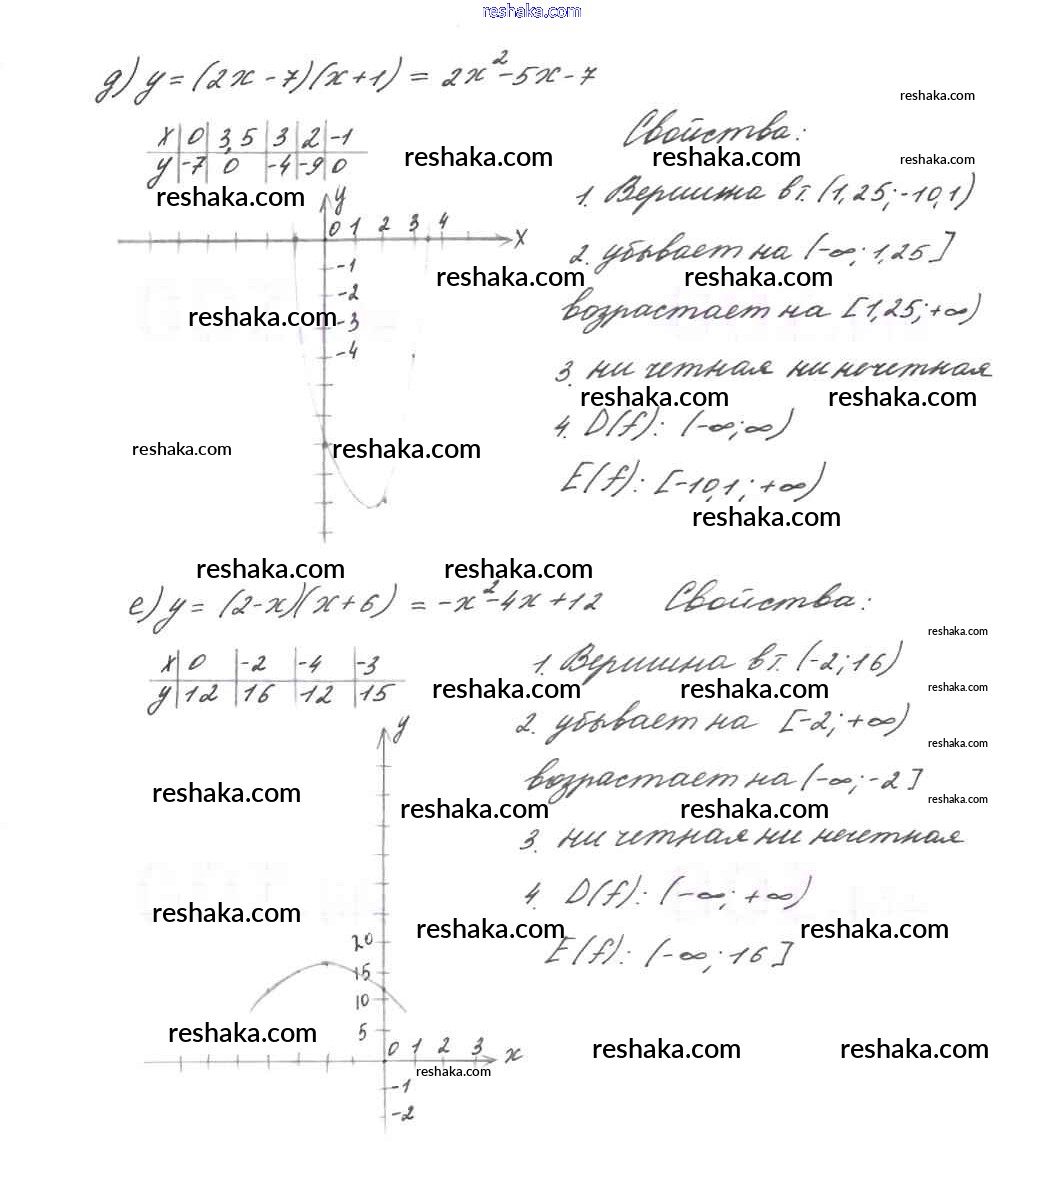 reshaka.com
д) y = (2x - 7)(x + 1) = 2x² - 5x - 7
reshaka.com
x | 0 | 3,5 | 3 | 2 | -1
Свойства:
y | -7 | 0 | -4 | -9 | 0
reshaka.com reshaka.com reshaka.com
reshaka.com
1. Вершина в т. (1,25; -10,1)
y
0 1 2 3 4 x
2. убывает на (-∞; 1,25]
-1
reshaka.com reshaka.com
-2
возрастает на [1,25; +∞)
reshaka.com
-3
-4
3. ни четная ни нечетная
reshaka.com reshaka.com
4. D(f): (-∞; ∞)
reshaka.com reshaka.com
E(f): [-10,1; +∞)
reshaka.com
reshaka.com reshaka.com
е) y = (2-x)(x+6) = -x² - 4x + 12
Свойства:
reshaka.com
x | 0 | -2 | -4 | -3
1. Вершина в т. (-2; 16)
y | 12 | 16 | 12 | 15
reshaka.com reshaka.com reshaka.com
y
2. убывает на [-2; +∞)
reshaka.com
возрастает на (-∞; -2]
reshaka.com
reshaka.com reshaka.com reshaka.com
3. ни четная ни нечетная
4. D(f): (-∞; +∞)
reshaka.com
reshaka.com reshaka.com
20
E(f): (-∞; 16]
15
10
5
reshaka.com
0 1 2 3 x
reshaka.com reshaka.com
reshaka.com
-1
-2